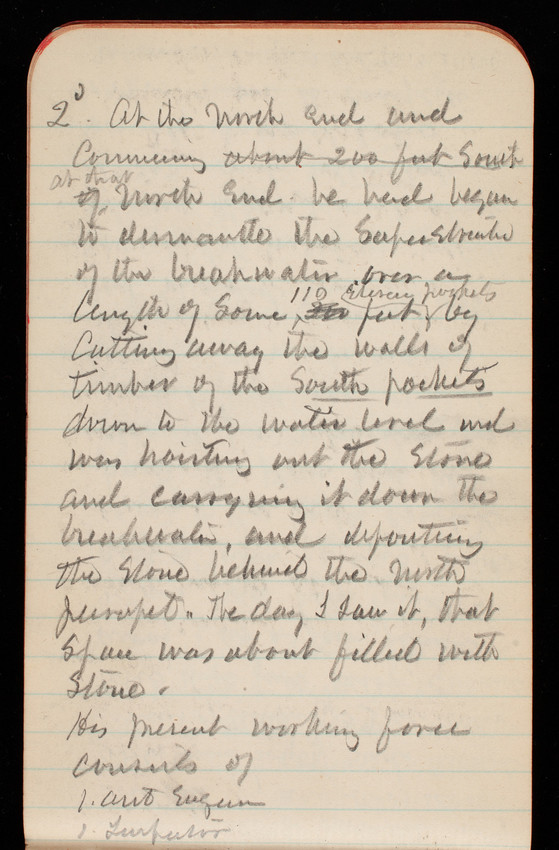 2°. At the North End and
Commencing ~~about 200 feet South~~
at that
~~of~~ North End he had begun
to dismantle the Superstructure
of the breakwater over a
110 (Eleven pockets
length of some, feet) by
Cutting away the walls of
timber of the South pockets
down to the water level and
was hoisting out the Stone
and carrying it down the
breakwater, and depositing
the Stone behind the north
parapet. The day I saw it, that
Space was about filled with
Stone.
His present working force
consists of
1. Asst Engineer
1. Inspector